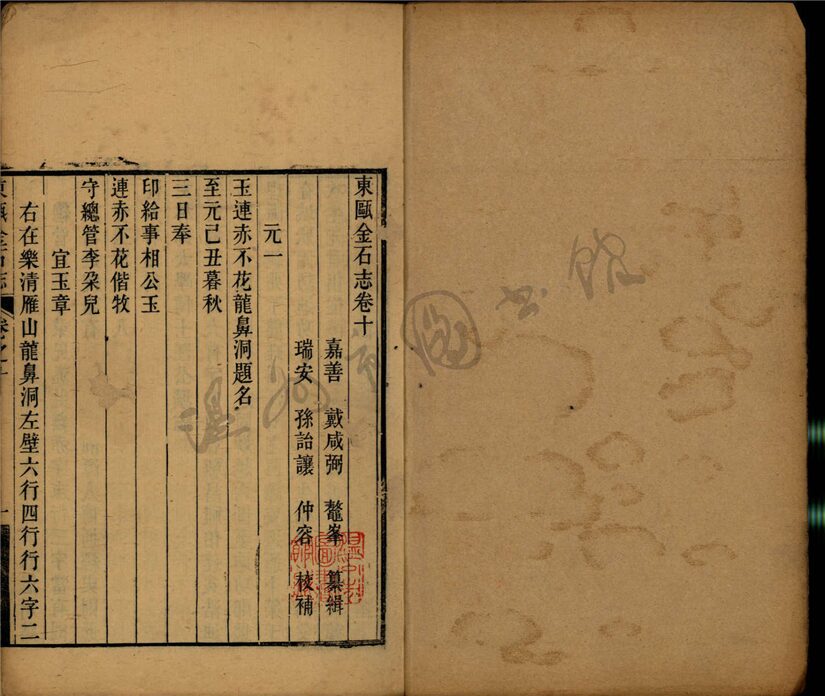 東甌金石志卷十
嘉善 戴咸弼 鼇峯 纂緝
瑞安 孫詒讓 仲容 校補
元一
玉連赤不花龍鼻洞題名
至元己丑暮秋
三日奉
印給事相公玉
連赤不花偕牧
守總管李朶兒
宜玉章
右在樂清雁山龍鼻洞左壁六行四行行六字二
東甌金石志 卷之十 一
溫州市圖書館